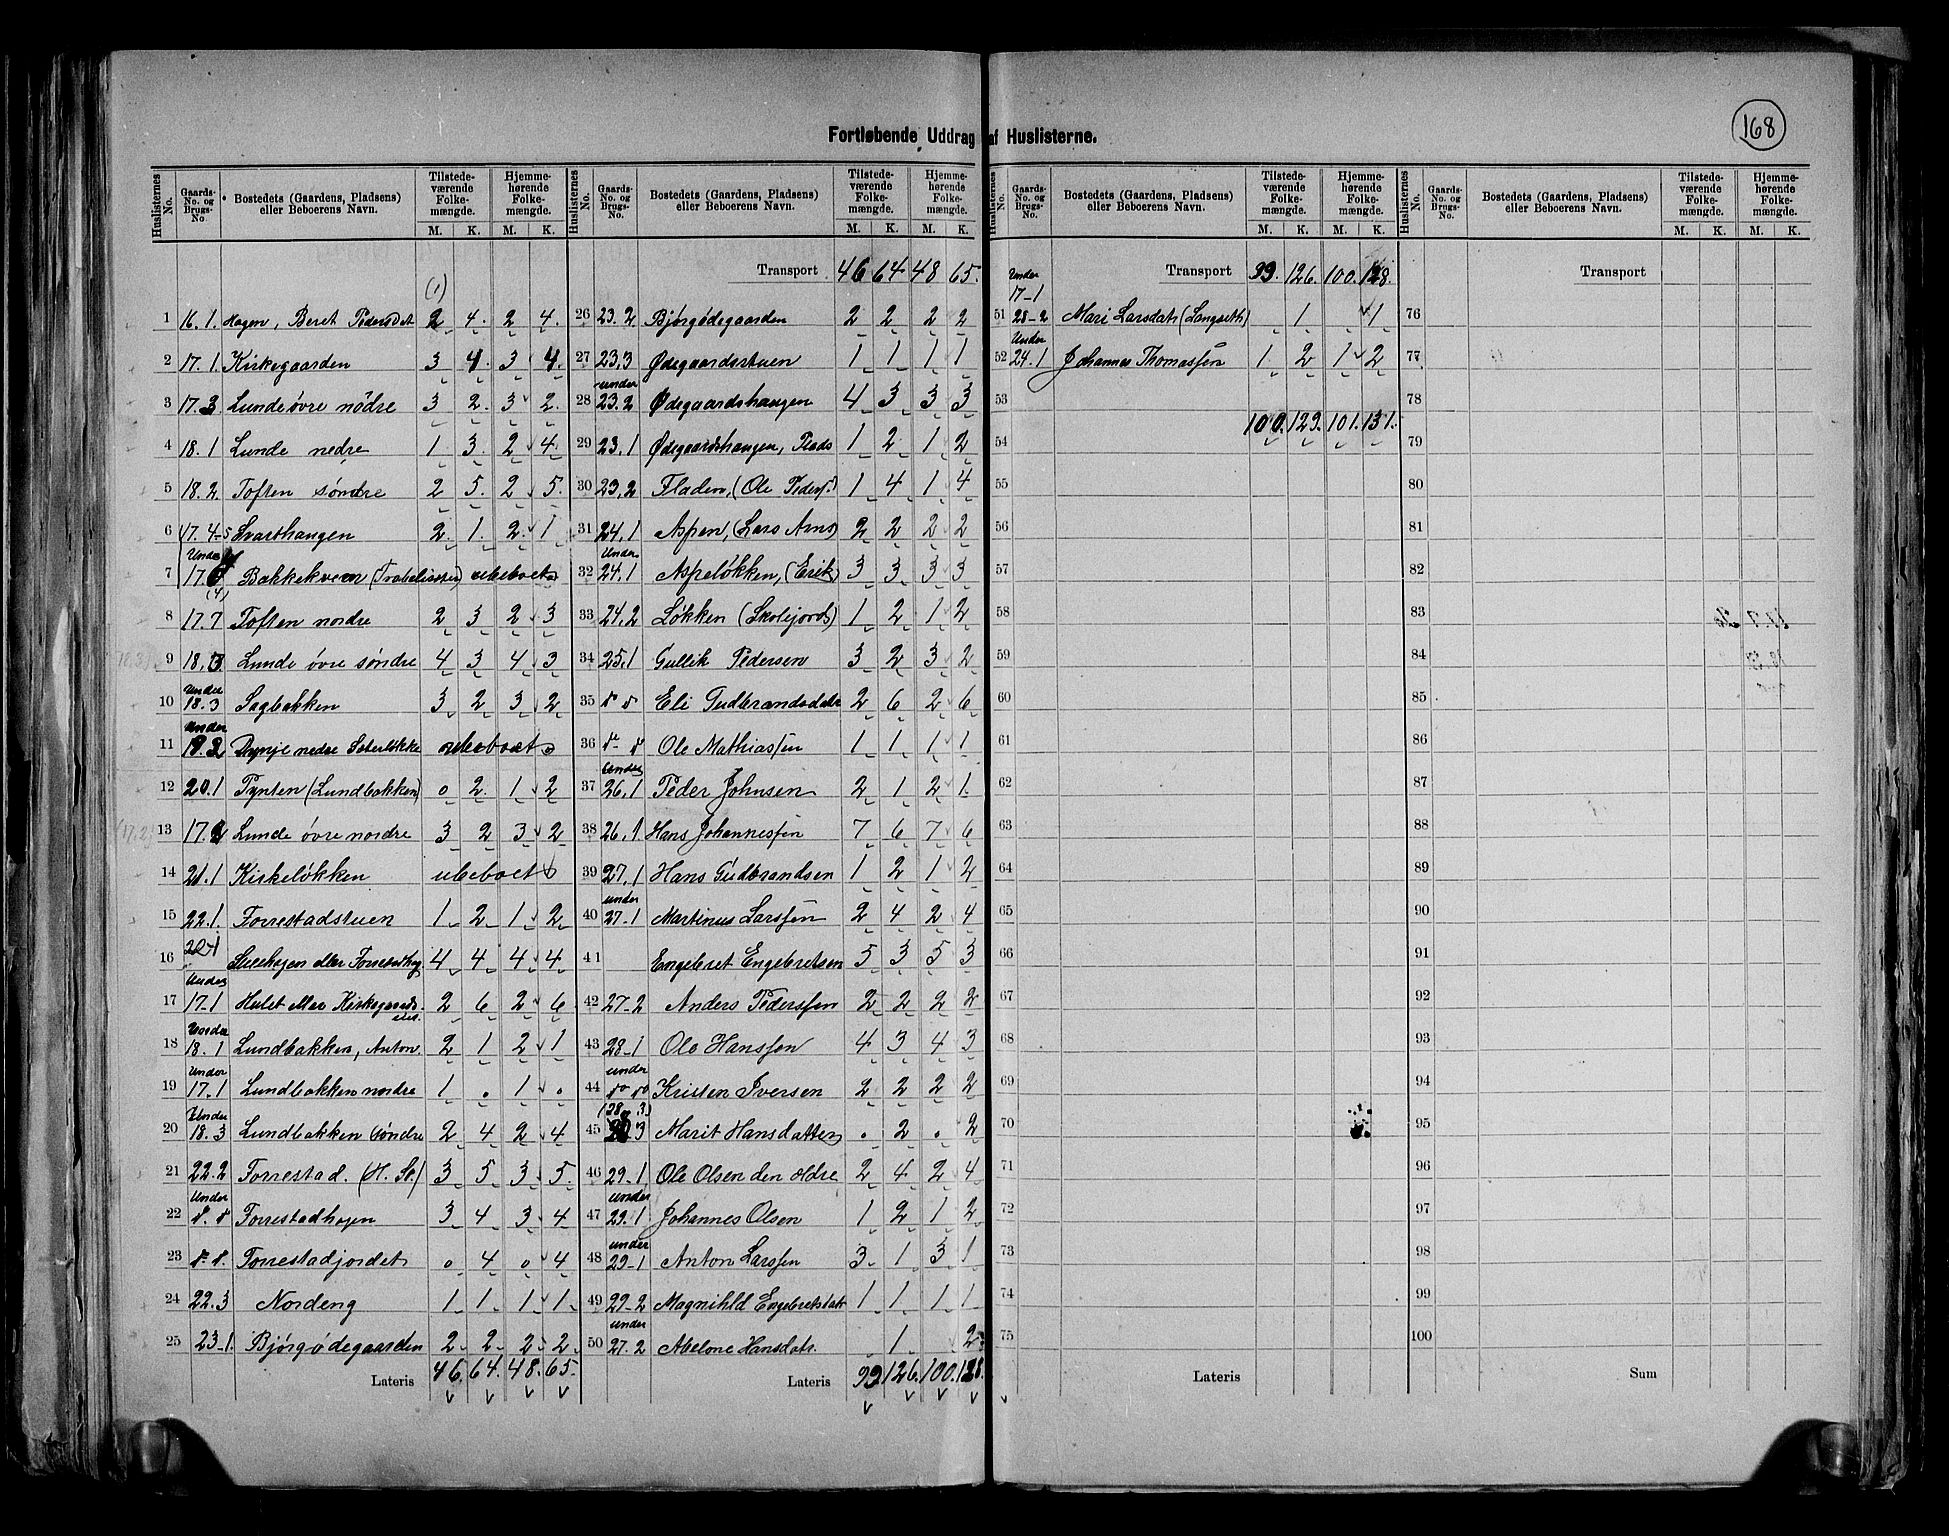 168
Fortløbende Uddrag af Huslisterne.
Huslisternes No. Gaards-No. og Brugs-No. Bostedets (Gaardens, Pladsens) eller Beboerens Navn. Tilstede-værende Folke-mængde. M. K. Hjemme-hørende Folke-mængde. M. K.
(1)
1 16.1. Hagen, Beret Pedersdat 2 4. 2 4.
2 17.1 Kirkegaarden 3 4. 3 4.
3 17.3 Lunde övre nödre 3 2. 3 2.
4 18.1 Lunde nedre 1 3. 2 4.
5 18.2 Toften søndre 2 5. 2 5.
6 17.4-5 Svarthaugen 2. 1. 2. 1
7 Under 17. (4) Bakkekveen ubeboet
8 17.7 Toften nordre 2 3 2 3
9 18.3 Lunde övre søndre 4 3 4 3
10 Under 18.3 Sagbakken 3 2 3 2
11 Under Dynje nedre Seterløkke ubeboet
12 20.1 Pynten (Lundbakken) 0 2. 1 2
13 17.2 Lunde övre nordre 3 2 3 2
14 21.1 Kirkeløkken ubeboet
15 22.1. Forrestadstuen 1 2 1 2
16 20-1 eller 4 4 4 4
17 Under 17-1 Hulet eller Kirkegaards 2 6 2 6
18 Under 18.1 Lundbakken, Anton 2 1 2 1
19 Under 17.1 Lundbakken nordre 1 . 1 .
20 Under 18.3 Lundbakken søndre 2 4 2 4
21 22.2 Forrestad. (H. St.) 3 5 3 5.
22 Under d°. d° Forrestadhagen 3 4 3 4
23 d°. d°. Forrestadjordet 0 4 0 4
24 22.3 Nordeng 1 1 1 1
25 23-1. Bjørgødegaarden 2 2 2 2
Lateris 46. 64. 48. 65.
Huslisternes No. Gaards-No. og Brugs-No. Bostedets (Gaardens, Pladsens) eller Beboerens Navn. Tilstede-værende Folke-mængde. M. K. Hjemme-hørende Folke-mængde. M. K.
Transport 46 64 48 65.
26 23.2 Bjørgødegaarden 2 2 2 2
27 23.3 Ødegaardsstuen 1 1 1 1
28 under 23.2 Ødegaardshaugen 4 3 3 3
29 23.1 Ødegaardshaugen, Plads 1 2 1 2
30 23.2 Fladen, (Ole Peders.) 1 4 1 4
31 24.1 Aspen, (Lars Arns) 2 2 2 2
32 Under 24.1 Aspeløkken, (Erik) 3 3 3 3
33 24.2 Løkken (Skolejords) 1 2 1 2
34 25.1 Gullik Pedersen 3 2 3 2
35 d° d° Eli Gudbrandsdatr 2 6 2 6
36 d°- d° Ole Mathiassen 1 1 1 1
37 Under 26.1 Peder Johnsen 2 1 2 1.
38 26.1 Hans Johannessen 7 6 7 6
39 27.1 Hans Gudbrandsen 1 2 1 2
40 under 27-1 Martinus Larssen 2 4 2 4
41 Engebret Engebretsen 5 3 5 3
42 27-2 Anders Pederssen 2 2 2 2
43 28-1 Ole Hanssen 4 3 4 3
44 under d° d° Kristen Iversen 2 2 2 2
45 (28, 3) Marit Hansdatter . 2 . 2
46 29-1 Ole Olsen den ældre 2 4 2 4
47 under 29.1 Johannes Olsen 1 2 1 2
48 under 29-1 Anton Larssen 3 1 3 1
49 29-2 Magnihld Engebretsdatr 1 1 1 1
50 under 27.2 Abelone Hansdatr. 1 2
Lateris 99. 126. 100. 128.
Huslisternes No. Gaards-No. og Brugs-No. Bostedets (Gaardens, Pladsens) eller Beboerens Navn. Tilstede-værende Folke-mængde. M. K. Hjemme-hørende Folke-mængde. M. K.
Transport 99. 126. 100. 128.
51 Under 17-1 28-2 Mari Larsdatr (Langseth) 1 1
52 Under 24.1 Johannes Thomassen 1. 2 1 2
53
100. 129. 101. 131.
54
55
56
57
58
59
60
61
62
63
64
65
66
67
68
69
70
71
72
73
74
75
Lateris
Huslisternes No. Gaards-No. og Brugs-No. Bostedets (Gaardens, Pladsens) eller Beboerens Navn. Tilstede-værende Folke-mængde. M. K. Hjemme-hørende Folke-mængde. M. K.
Transport
76
77
78
79
80
81
82
83
84
85
86
87
88
89
90
91
92
93
94
95
96
97
98
99
100
Sum